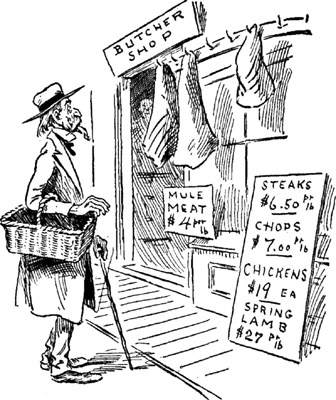 BUTCHER
SHOP
MULE
MEAT
$4 per
lb
STEAKS
$6.50 Pr lb
CHOPS
$7.00 Pr lb
CHICKENS
$19 EA
SPRING
LAMB
$27 Pr lb